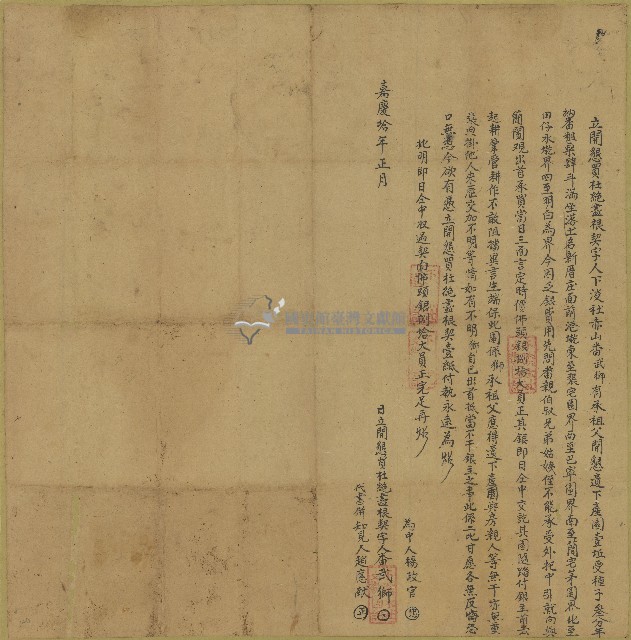 立開懇賣杜絕盡根契字人下淡社赤山番武獅有承祖父開懇遺下產園壹坵受種子叁分年
納番租粟肆斗滿坐落土名新厝庄面前港墘東至張宅園界西至巴寧園界南至簡宅茅園界北至
田仔承墘界四至明白為界今因乏銀費用先問番親伯叔兄弟姑姨侄不能承受外托中引就向與
簡閣觀出首承買當日三面言定時價佛頭銀捌拾大員正其銀即日仝中交訖其園隨踏付銀主前去
起耕掌管耕作不敢阻擋異言生端保此園係獅承祖父應得遺下產園與房親人等無干亦無重
張典掛他人來歷交加不明等情如有不明獅自己出首抵當不干銀主之事此係二比甘愿各無反悔恐
口無憑今欲有憑立開懇賣杜絕盡根契壹紙付執永遠為炤
批明即日仝中收過契面佛頭銀捌拾大員正完足再炤
為中人楊政官
嘉慶拾年正月
日立開懇賣杜絕盡根契字人番武獅
代書併知見人趙應猷
國史館臺灣文獻館
TAIWAN HISTORICA